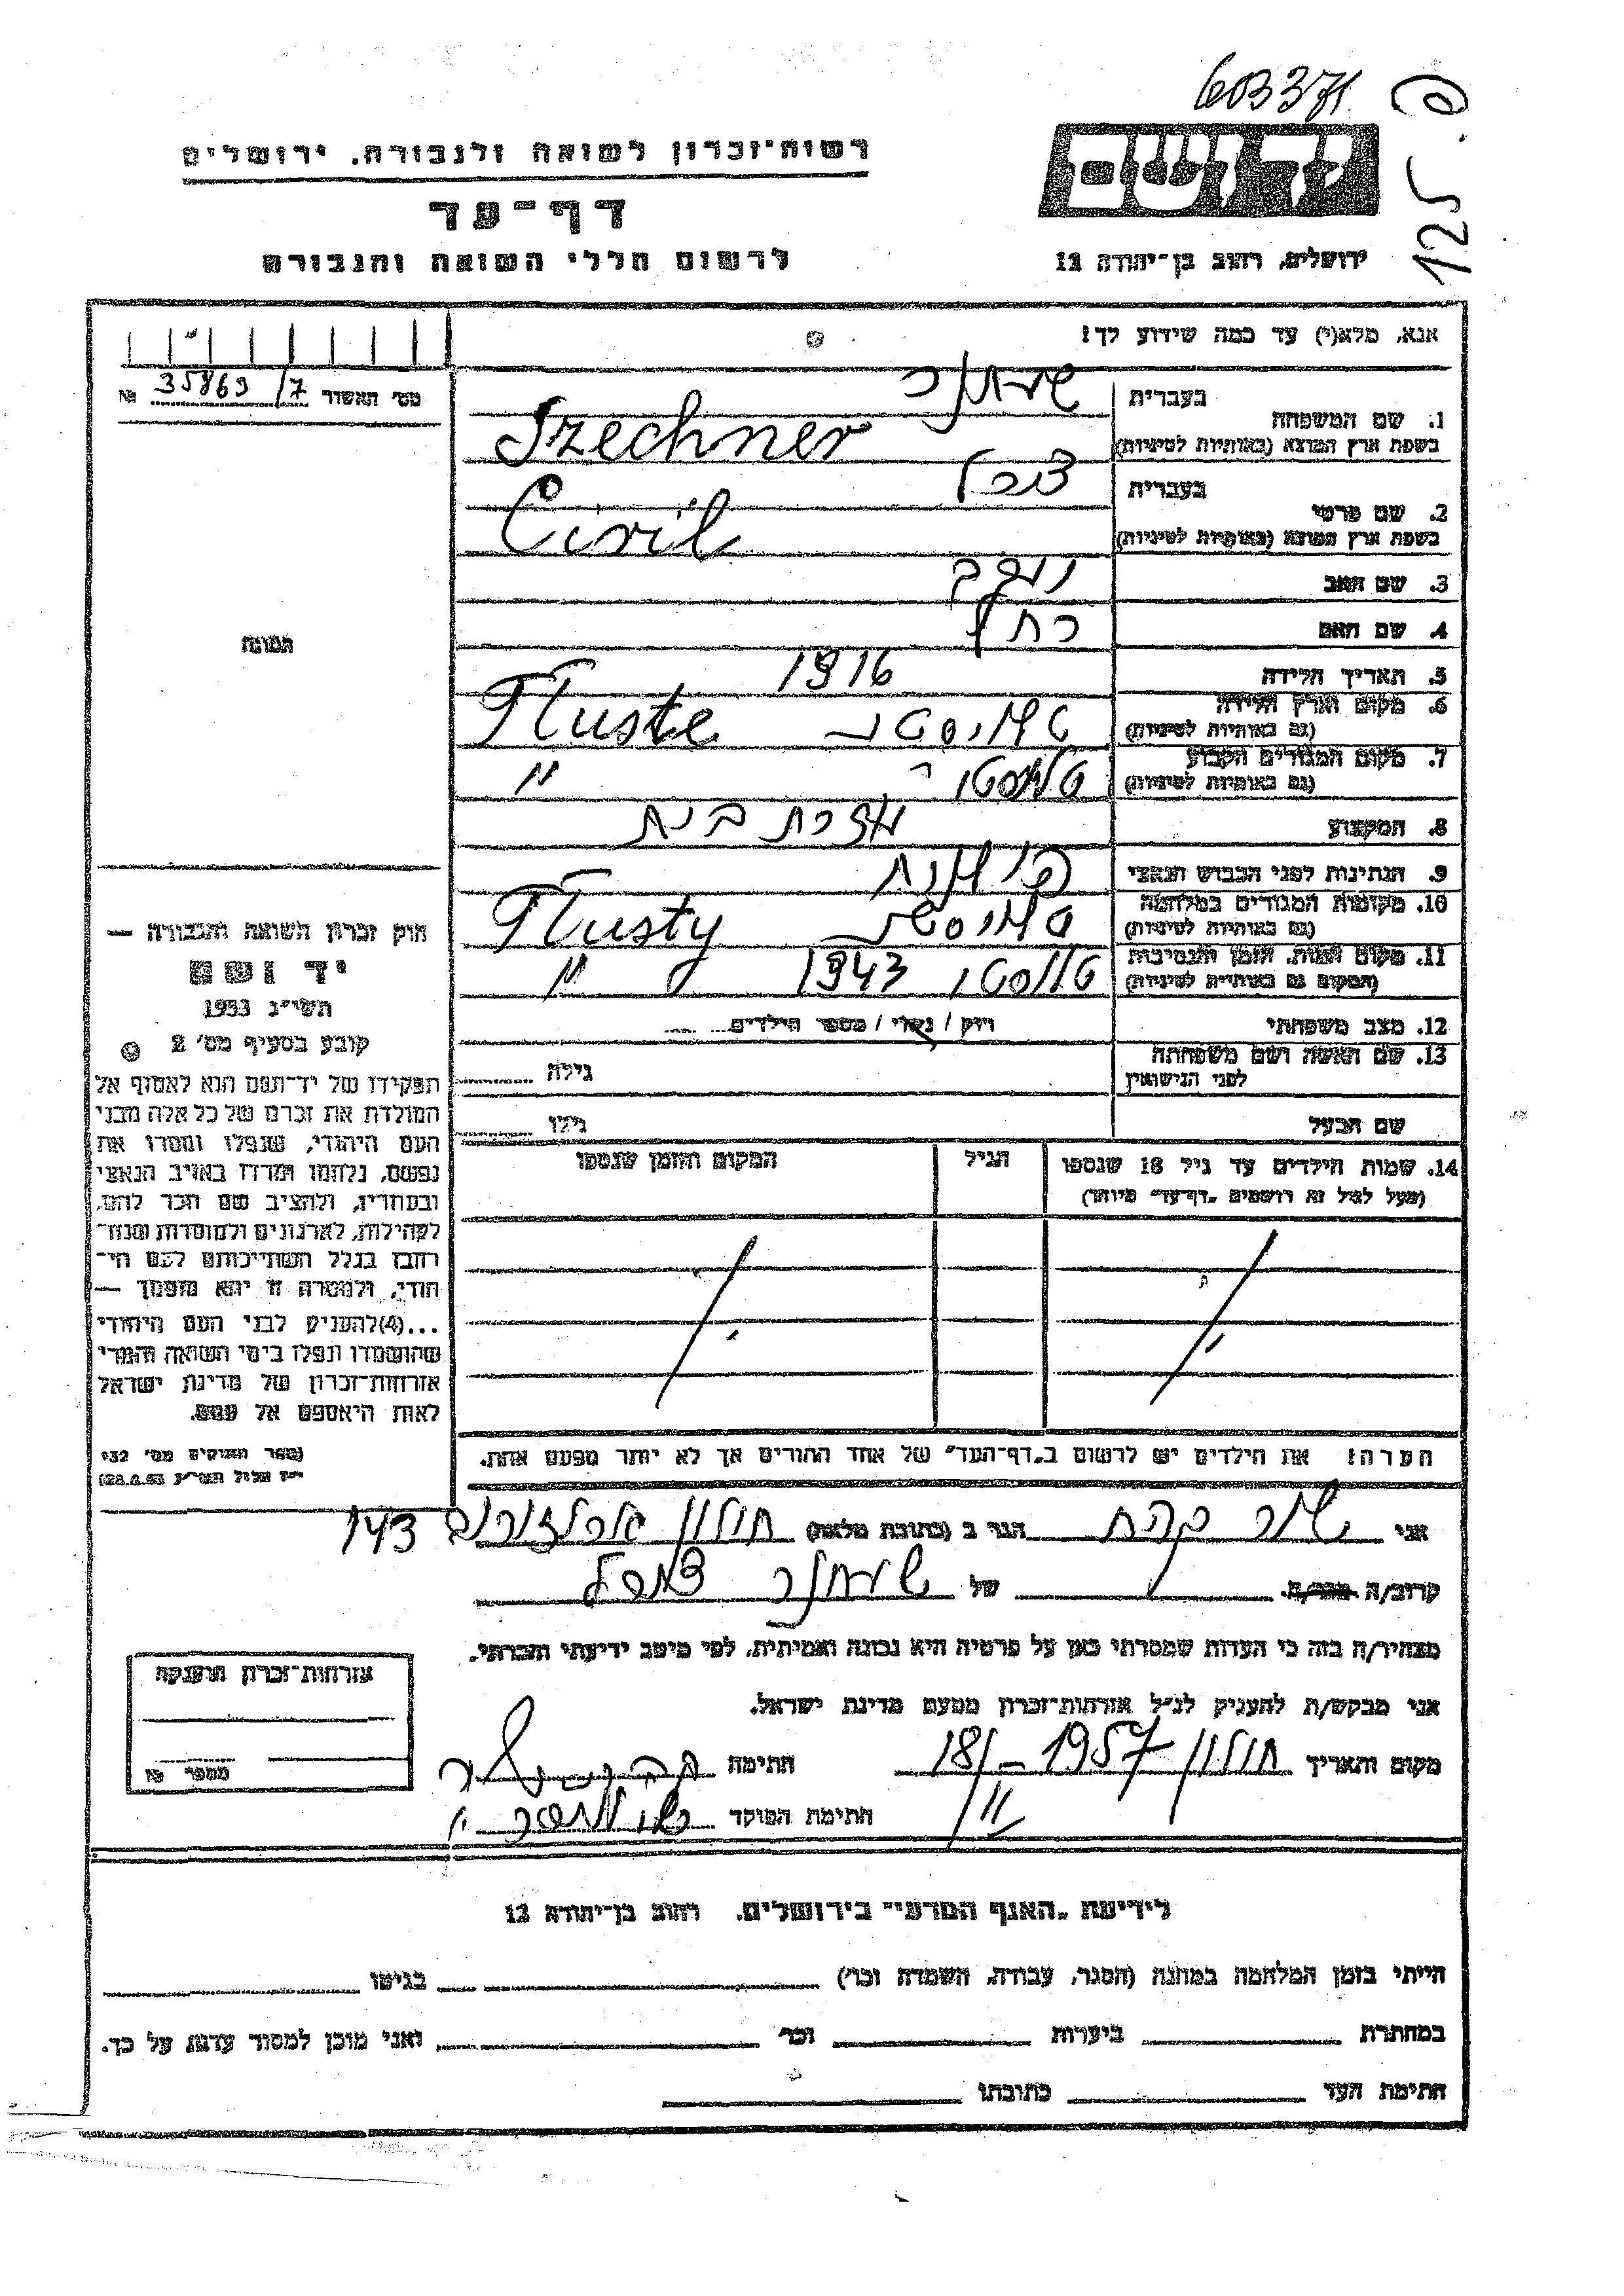 603371
125
רשות־זכרון לשואה ולגבורה, ירושלים
דף־עד
לרשום חללי השואה והגבורה
יד ושם
ירושלים, רחוב בן־יהודה 12
אנא, מלא(י) עד כמה שידוע לך!
מס׳ האשור 35863/7 №
1. שם המשפחה
בעברית
בשפת ארץ המוצא (באותיות לטיניות) Szechner
2. שם פרטי
בעברית
בשפת ארץ המוצא (באותיות לטיניות) Civil
3. שם האב
4. שם האם
5. תאריך הלידה 1916
6. מקום וארץ הלידה
(גם באותיות לטיניות) Tluste
7. מקום המגורים הקבוע
(גם באותיות לטיניות) "
8. המקצוע עזרת בית
9. הנתינות לפני הכבוש הנאצי פולנית
10. מקומות המגורים במלחמה
(גם באותיות לטיניות) Tlusty
11. מקום המות, הזמן והנסיבות
(המקום גם באותיות לטיניות) 1943 "
12. מצב משפחתי רווק / נשוי / מספר הילדים
13. שם האשה ושם משפחתה
לפני הנישואין גילה
שם הבעל גילו
14. שמות הילדים עד גיל 18 שנספו
(מעל לגיל זה רושמים „דף־עד״ מיוחד)
הגיל
המקום והזמן שנספו
הערה! את הילדים יש לרשום ב„דף־העד״ של אחד ההורים אך לא יותר מפעם אחת.
התמונה
חוק זכרון השואה והגבורה —
יד ושם
תשי״ג 1953
קובע בסעיף מס׳ 2
תפקידו של יד־ושם הוא לאסוף אל
המולדת את זכרם של כל אלה מבני
העם היהודי, שנפלו ומסרו את
נפשם, נלחמו ומרדו באויב הנאצי
ובעוזריו, ולהציב שם וזכר להם,
לקהילות, לארגונים ולמוסדות שנח־
רבו בגלל השתייכותם לעם הי־
הודי, ולמטרה זו יהא מוסמך —
...(4) להעניק לבני העם היהודי
שהושמדו ונפלו בימי השואה והמרי
אזרחות־זכרון של מדינת ישראל
לאות היאספם אל עמם.
(ספר החוקים מס׳ 132
י״ז אלול תשי״ג 28.8.53)
אני הגר ב (כתובת מלאה) חולון 143
קרוב/ה מכר/ה של
מצהיר/ה בזה כי העדות שמסרתי כאן על פרטיה היא נכונה ואמיתית, לפי מיטב ידיעתי והכרתי.
אני מבקש/ת להעניק לנ״ל אזרחות־זכרון מטעם מדינת ישראל.
מקום ותאריך חולון 18/II - 1957 חתימה
חתימת הפוקד
אזרחות־זכרון הוענקה
מספר
לידיעת „האגף המדעי״ בירושלים, רחוב בן־יהודה 12
הייתי בזמן המלחמה במחנה (הסגר, עבודה, השמדה וכו׳) בגיטו
במחתרת ביערות וכו׳ ואני מוכן למסור עדות על כך.
חתימת העד כתובתו